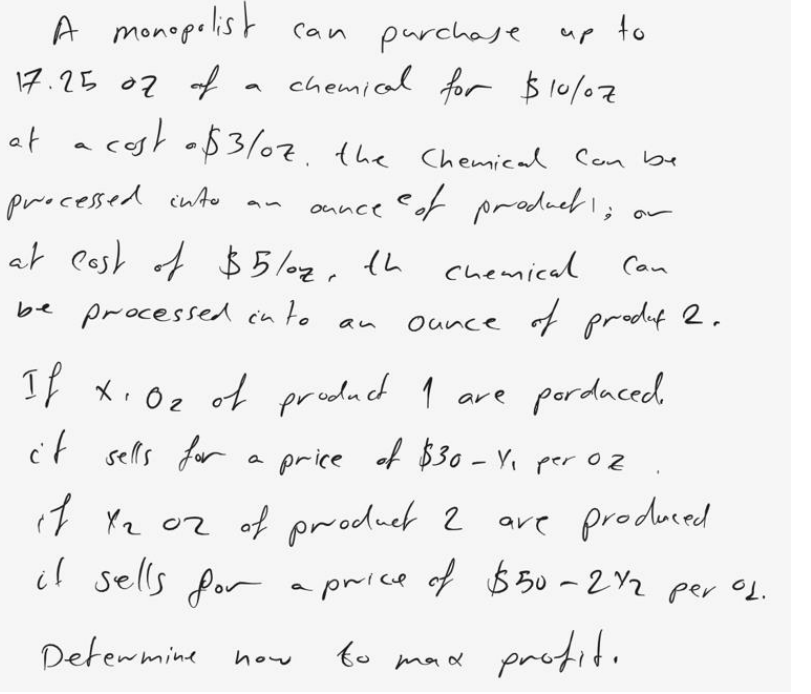 A monopolist can purchase up to
17.25 oz of a chemical for $10/oz
at a cost o $3/oz. the Chemical Can be
processed into an ounce of product 1; or
at Cost of $5/oz, th chemical Can
be processed into an ounce of produt 2.
If x1 Oz of product 1 are porduced.
it sells for a price of $30 - x1 per oz.
if x2 oz of product 2 are produced
it sells for a price of $50 - 2x2 per oz.
Determine how to max profit.